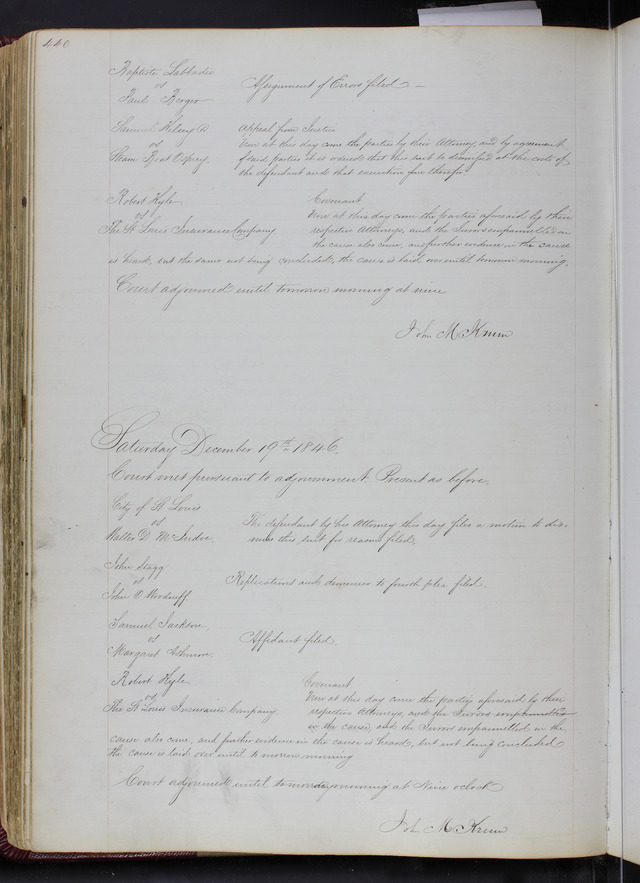 440
Baptiste Labbadie
vs
Paul Berger
Assignment of Errors filed —
Samuel Kelsey
vs
Steam Boat Osprey
Appeal from Justice
Now at this day come the parties by their Attorneys and by agreement
of said parties it is ordered that this suit be dismissed at the costs of
the defendant and that execution issue therefor
Robert Kyle
vs
The St Louis Insurance Company
Covenant
Now at this day come the parties aforesaid by their
respective Attorneys, and the Jurors empannelled in
the cause also come, and further evidence in the cause
is heard, but the same not being concluded, the cause is laid over until tomorrow morning.
Court adjourned until tomorrow morning at nine
John M Krum
Saturday December 19th 1846.
Court met pursuant to adjournment. Present as before.
City of St Louis
vs
Walter D.
The defendant by his Attorney this day files a motion to dis-
miss this suit for reasons filed.
John
vs
John O Woodruff
Replications and demurrer to fourth plea filed.
Samuel Jackson
vs
Margaret
Affidavit filed.
Robert Kyle
vs
The St Louis Insurance Company
Covenant
Now at this day come the parties aforesaid by their
respective Attorneys, and the Jurors empannelled
in the cause, and the Jurors empannelled in the
cause also come, and further evidence in the cause is heard, but not being concluded
the cause is laid over until tomorrow morning
Court adjourned until tomorrow morning at Nine oclock
John M Krum